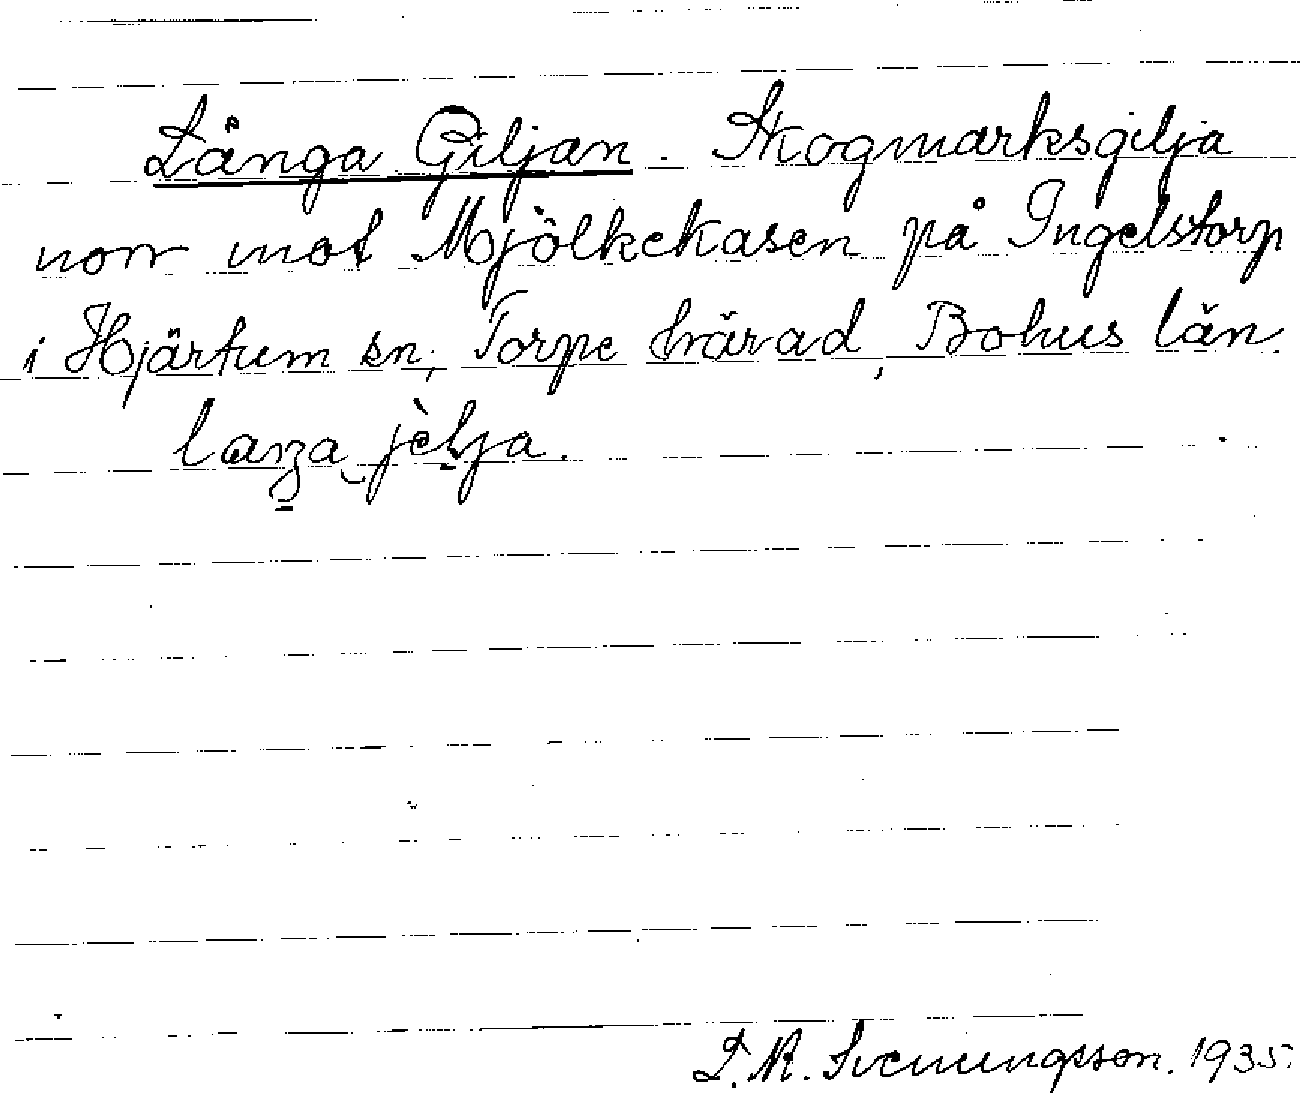 Långa Giljan. Skogmarksgilja
norr mot Mjölkekasen på Ingelstorp
i Hjärtum sn, Torpe härad, Bohus län.
laŋa jèlja.
S. M. Svenungsson. 1935.